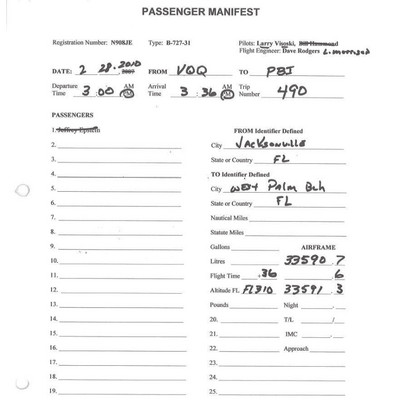 PASSENGER MANIFEST
Registration Number: N908JE Type: B-727-31 Pilots: Larry Visoski, Bill Hammond
Flight Engineer: Dave Rodgers L. morrison
DATE: 2 28.2010 2007 FROM VQQ TO PBI
Departure Time 3:00 AM PM Arrival Time 3:36 AM PM Trip Number 490
PASSENGERS
1. Jeffrey Epstein FROM Identifier Defined
2. City Jacksonville
3. State or Country FL
4. TO Identifier Defined
5. City west Palm Bch
6. State or Country FL
7. Nautical Miles
8. Statute Miles
9. Gallons AIRFRAME
10. Litres 33590 7
11. Flight Time .36 6
12. Altitude FL FL310 33591 3
13. Pounds Night
14. 20. T/L /
15. 21. IMC
16. 22. Approach
17. 23.
18. 24.
19. 25.